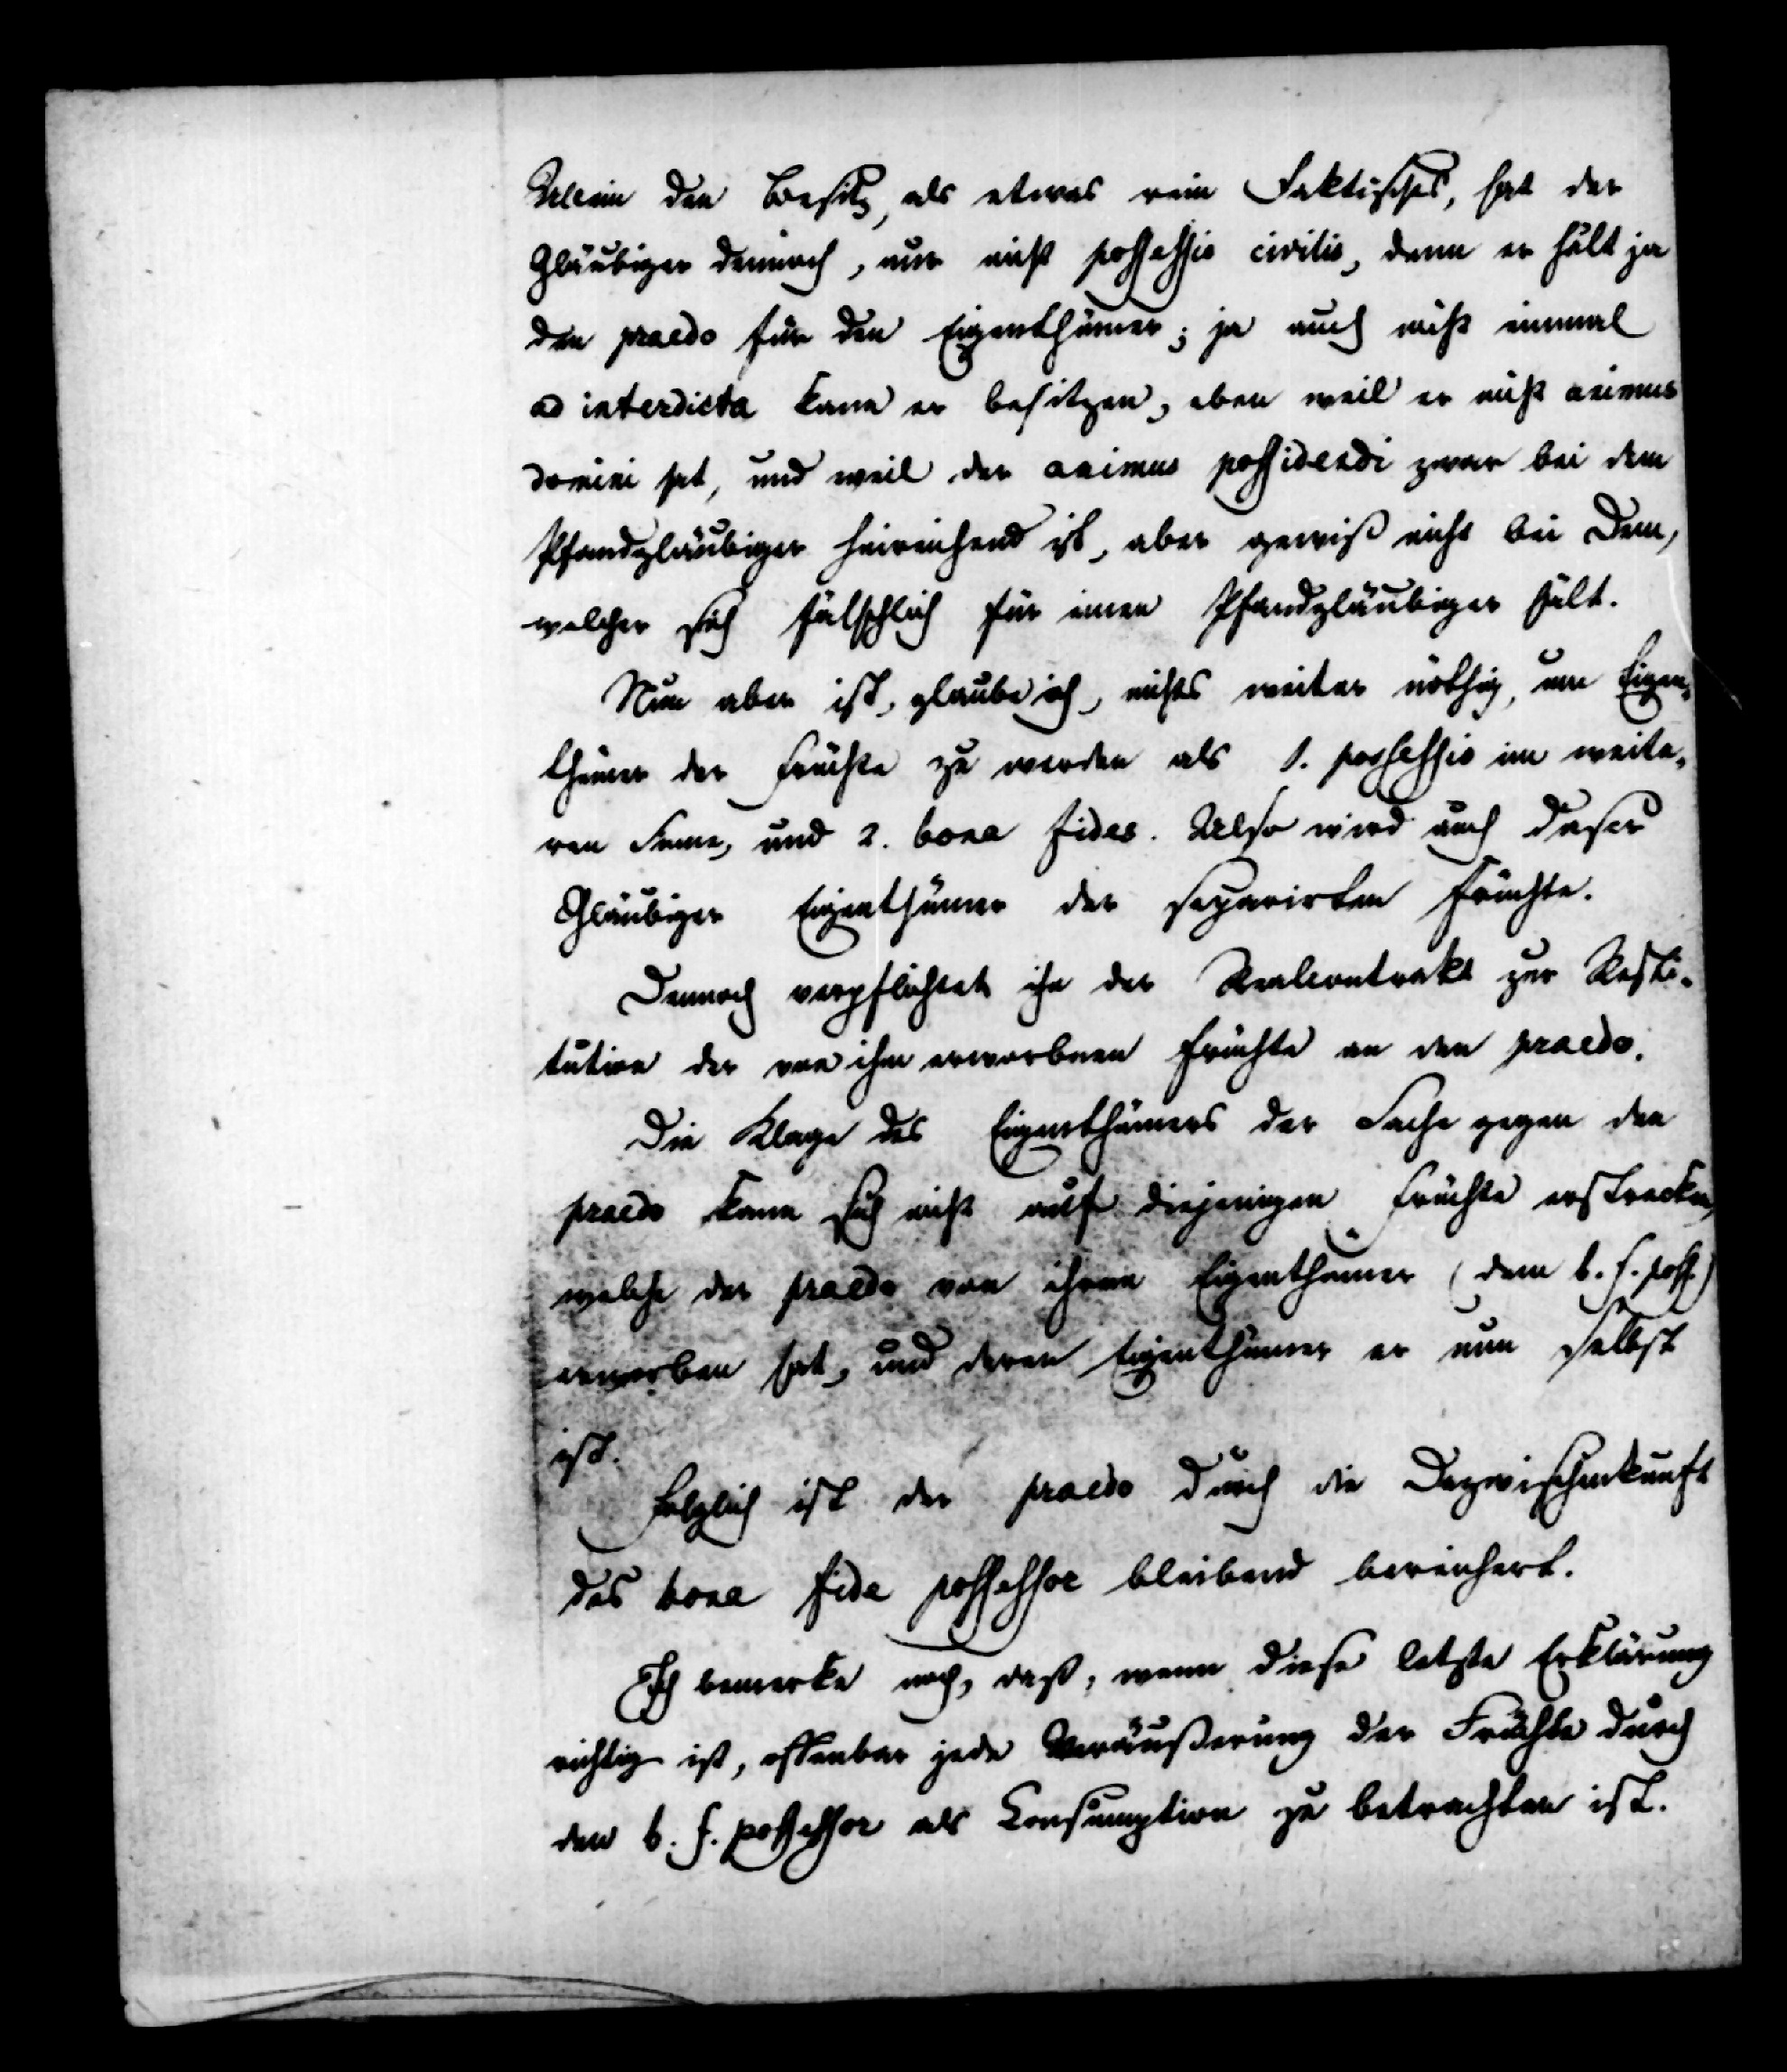 Allein den Besitz, als etwas rein Faktisches, hat der
Gläubiger dennoch, nur nicht possessio civilis, denn er hält ja
den praedo für den Eigenthümer; ja auch nicht einmal
ad interdicta kann er besitzen, eben weil er nicht animus
domini hat, und weil der animus possidendi zwar bei dem
Pfandgläubiger hinreichend ist, aber gewiß nicht bei Dem,
welcher sich fälschlich für einen Pfandgläubiger hält.
Nun aber ist, glaube ich, nichts weiter nöthig, um Eigen-
thümer der Früchte zu werden als 1. possessio im weite-
ren Sinne, und 2. bona fides. Also wird auch dieser
Gläubiger Eigenthümer der separirten Früchte.
Dennoch verpflichtet ihn der Realcontrakt zur Resti-
tution der von ihm erworbnen Früchte an den praedo.
Die Klage des Eigenthümers der Sache gegen den
praedo kann sich nicht auf diejenigen Früchte erstrecken,
welche der praedo von ihrem Eigenthümer (dem b. f. poss.)
erworben hat, und deren Eigenthümer er nun selbst
ist.
Folglich ist der praedo durch die Dazwischenkunft
des bona fide possessor bleibend bereichert.
Ich bemerke noch, daß, wenn diese letzte Erklärung
richtig ist, offenbar jede Veräußerung der Früchte durch
den b. f. possessor als Consumption zu betrachten ist.